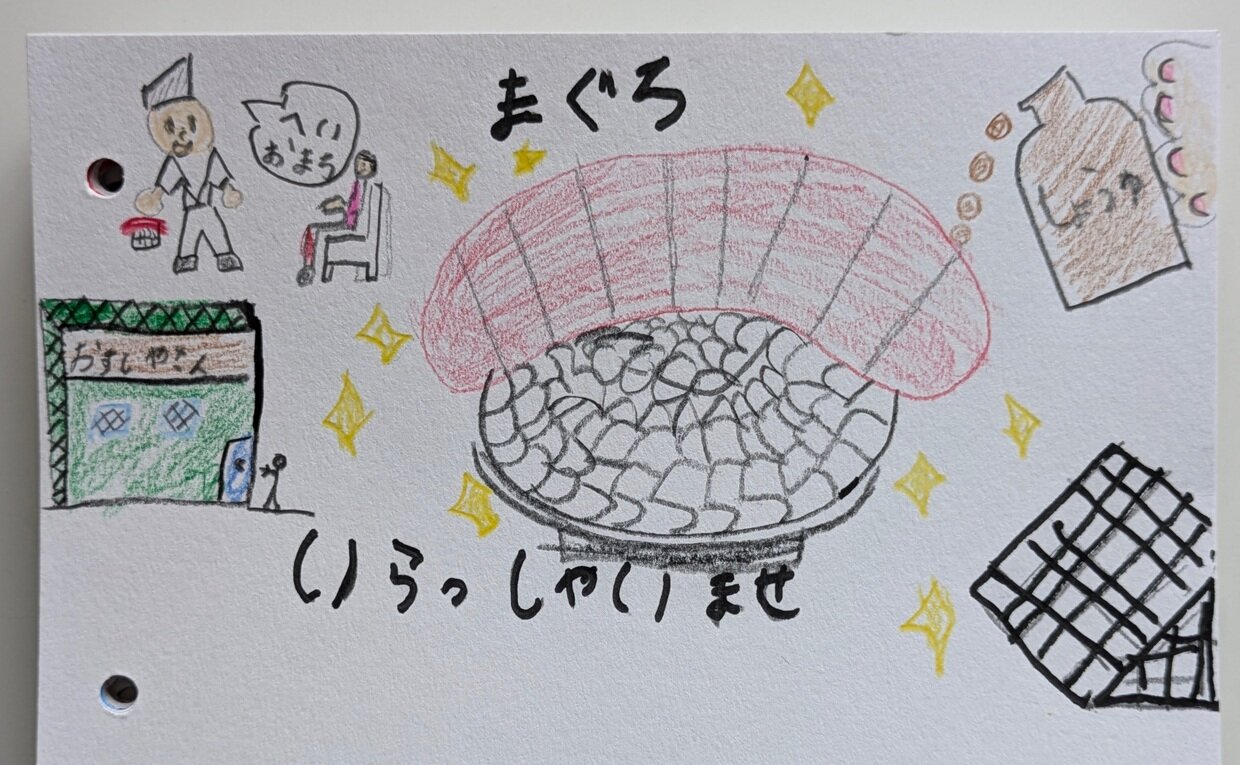 まぐろ
へい
おまち
しょうゆ
おすしやさん
いらっしゃいませ